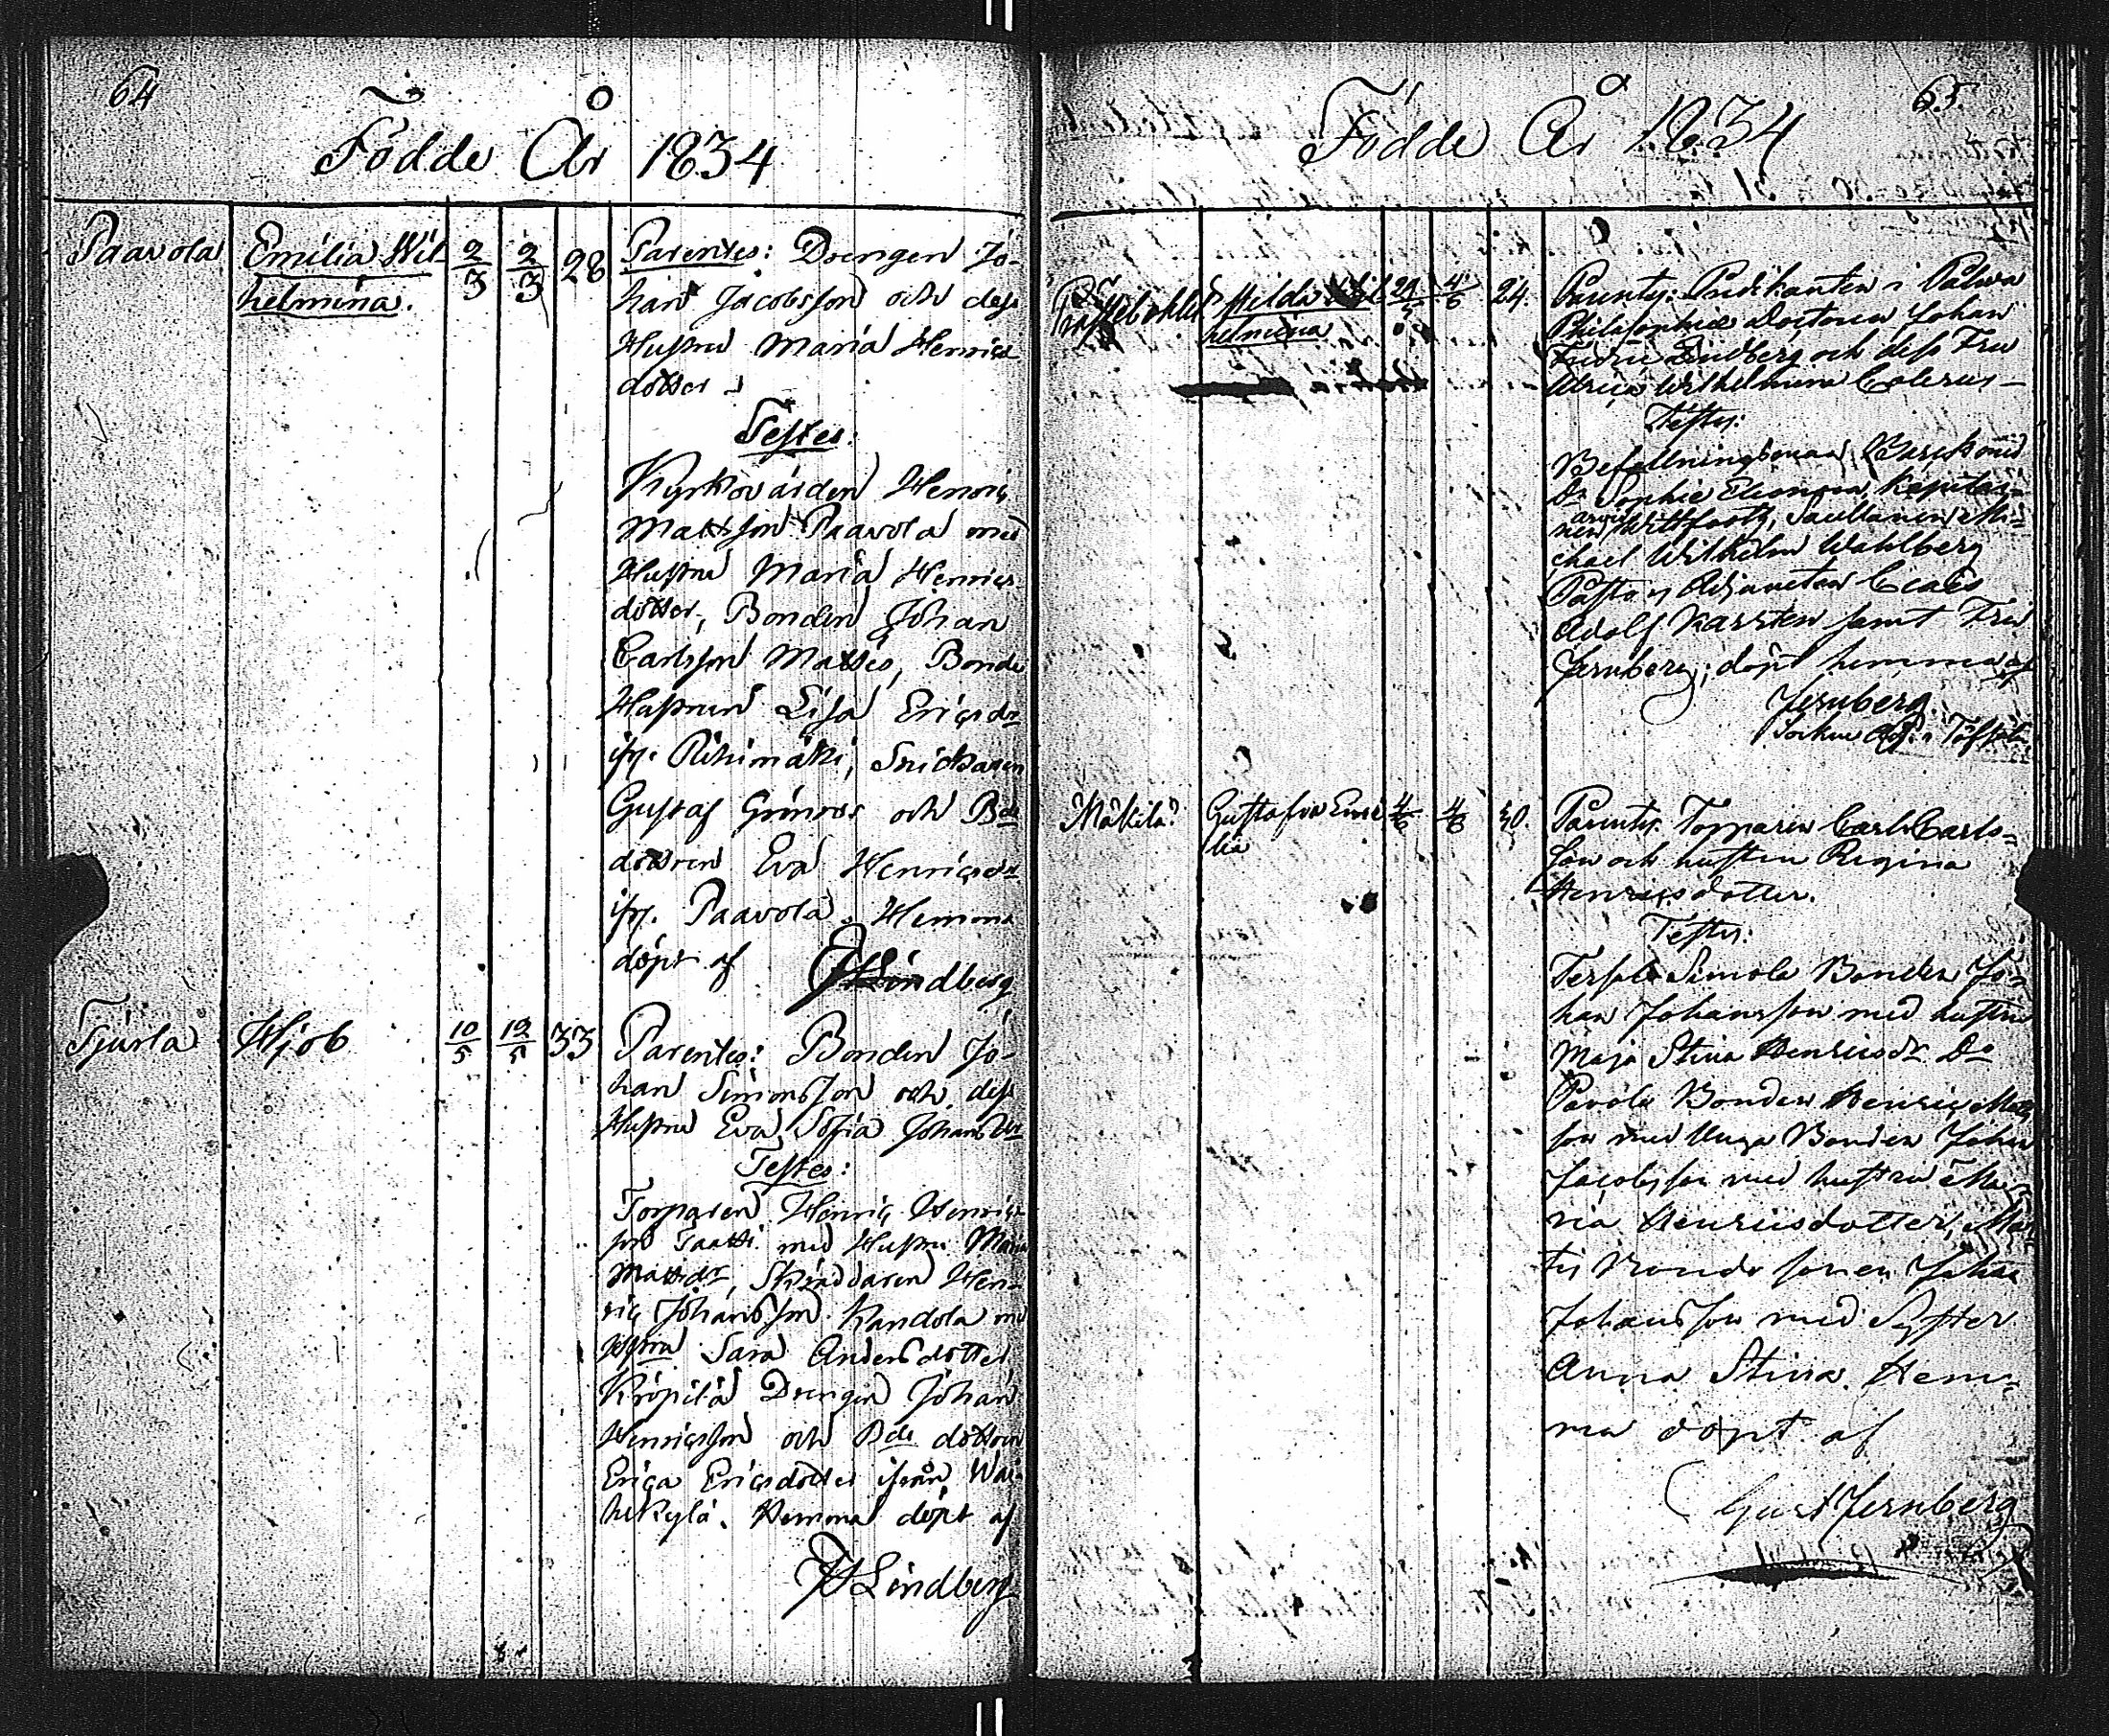 64
Födde År 1834
Paavola
Emilia Wil-
helmina.
2/3
2/3
28
Parentes: Drengen Jo-
han Jacobsson och dess
Hustru Maria Henrics
dotter
Testes:
Kyrkovärden Henric
Mattsson Paavola med
Hustru Maria Henrics
dotter, Bonden Johan
Carlsson Mattes, Bonde
Hustrun Lisa Ericsdr
ifr. Rihimäki, Snickaren
Gustaf Grönroos och Bde
dottren Eva Henricsdr
ifr. Paavola. Hemma
döpt af JF Lindberg
Tjurla
Hjob
10/5
12/5
33
Parentes: Bonden Jo-
han Simonsson och dess
Hustru Eva Sofia Johansdr
Testes:
Torparen Henric Henrics
son Taatti med Hustru Maria
Mattsdr, Skräddaren Hen-
ric Johansson Kandola med
Hstru Sara Andersdotter
Kröpilä Drengen Johan
Henricsson och Bde dottren
Erica Ericsdotter ifrån Wai-
hekylä. Hemma döpt af
JF Lindberg
65.
Födde År 1834
Hilda Wil
helmina
29/5
4/6
24.
Parentes: Predikanten i Pálwa
Philosophiæ Doctoren Johan
Fredric Lindberg och dess Fru
Ulrica Wilhelmina Colerus –
Testes:
Befallningsman
Dr Sophie Eleonora,
Wittfooth, Mi-
chael Wilhelm Wahlberg
Pastors Adjuncten Claes
Adolf Karsten samt Fru
Jernberg; döpt hemma af
Jernberg.
Mäkilä
Gustafva Emi
lia
4/6
4/6
30.
Parentes: Torparen Carl Carls-
son och hustru Regina
Henricsdotter.
Testes:
Simola Bonden Jo-
han Johansson med hustru
Maja Stina Henricsdr Do
Pavola Bonden Henric Matts
son med Bonden Johan
Jacobsson med hustru Ma-
ria Henricsdotter, Mat-
tis Bonde sonen Johan
Johansson med Syster
Anna Stina. Hem-
ma döpt af
Gust Jernberg